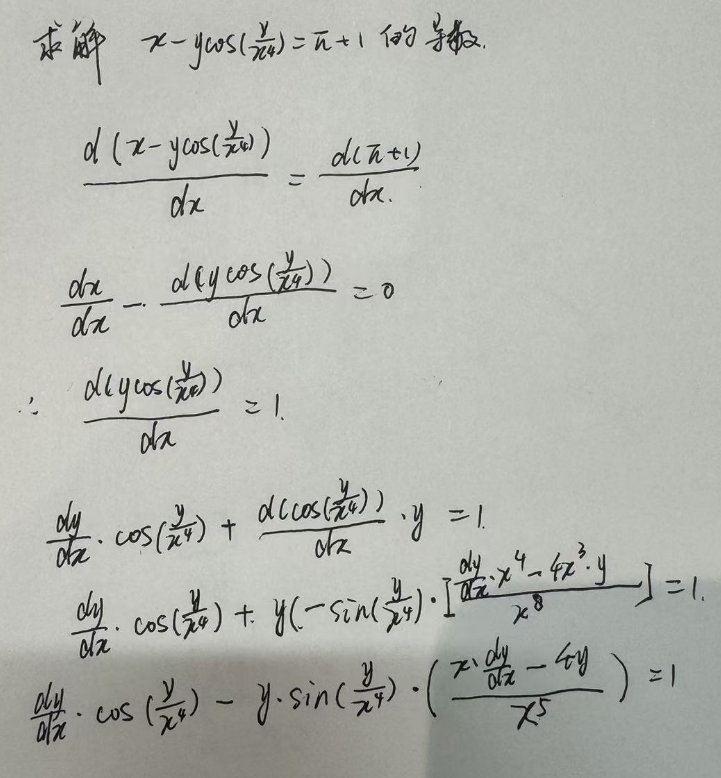 求解 x-ycos(y/x⁴)=π+1 的导数.
d(x-ycos(y/x⁴))/dx = d(π+1)/dx.
dx/dx - d(ycos(y/x⁴))/dx = 0
∴ d(ycos(y/x⁴))/dx = 1.
dy/dx · cos(y/x⁴) + d(cos(y/x⁴))/dx · y = 1.
dy/dx · cos(y/x⁴) + y(-sin(y/x⁴) · [(dy/dx · x⁴ - 4x³ · y)/x⁸] = 1.
dy/dx · cos(y/x⁴) - y · sin(y/x⁴) · ((x · dy/dx - 4y)/x⁵) = 1